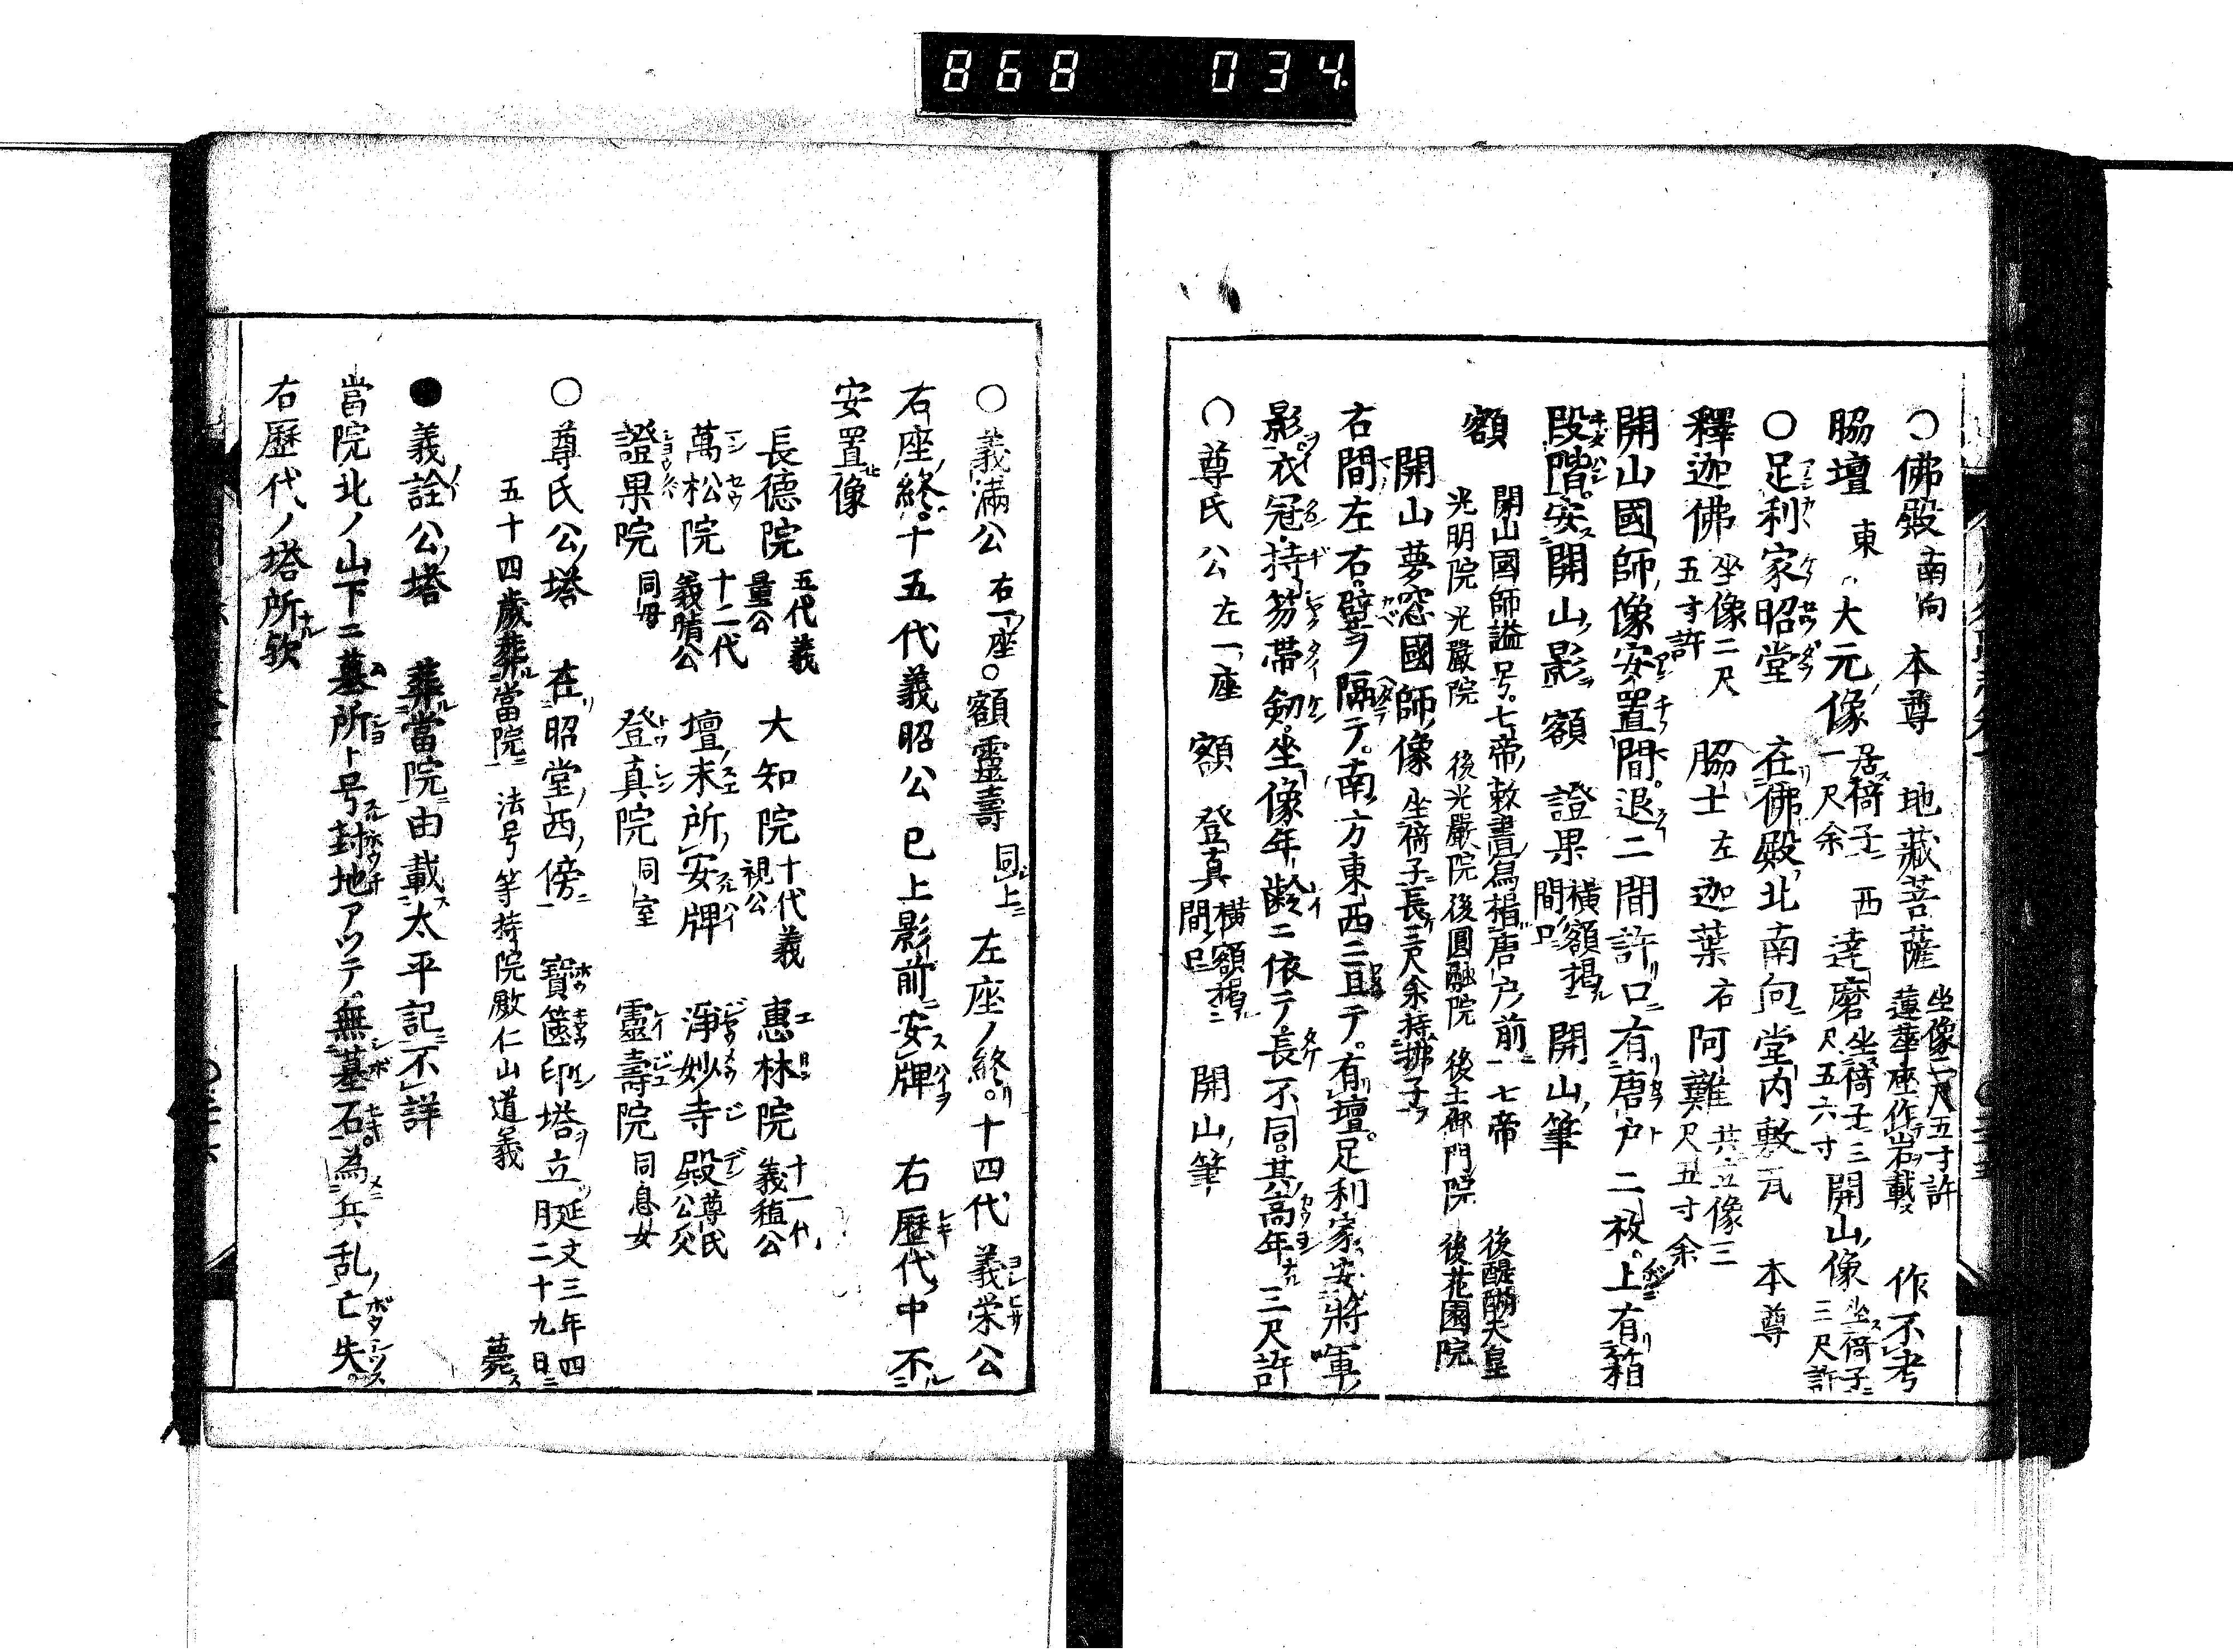 868 034
○佛殿 南向 本尊 地藏菩薩 坐像二尺五寸許 蓮華座作岩載 作不考
脇壇 東ハ大元像 居椅子一尺余 西 達磨 坐椅子三尺五六寸 開山像 坐椅子三尺許
○足利家昭堂 在佛殿北南向堂内敷瓦 本尊
釋迦佛 坐像二尺五寸許 脇士 左 迦葉 右 阿難 共立像三尺五寸余
開山國師像安置間退二間許口有唐戸二枚上有箱
段階安開山影 額 證果 横額掲間口 開山筆
額 開山國師謚号七帝敕書寫楣唐戸前 七帝 後醍醐天皇
光明院 光嚴院 後光嚴院 後圓融院 後土御門院 後花園院
開山夢窓國師像 坐椅子長三尺余持拂子
右間左右壁ヲ隔テ南方東西ニ亘テ有壇足利家安將軍
影衣冠持笏帶剱坐像年齢ニ依テ長不同其高年三尺許
○尊氏公 左一座 額 登真 横額掲間口 開山筆
○義滿公 右一座○額靈壽 同上 左座ノ終十四代義栄公
右座終十五代義昭公已上影前安牌 右歷代中不
安置像
長德院 五代義量公 大知院 十代義視公 惠林院 十一代義稙公
萬松院 十二代義晴公 壇末所安牌 淨妙寺殿 尊氏公父
證果院 同母 登真院 同室 靈壽院 同息女
○尊氏公塔 在昭堂西傍 寳篋印塔立 延文三年四月二十九日
五十四歲葬當院 法号等持院殿仁山道義 薨
●義詮公塔 葬當院由載太平記不詳
當院北ノ山下ニ墓所ト号封地アツテ無墓石為兵乱亡失
右歷代ノ塔所欤